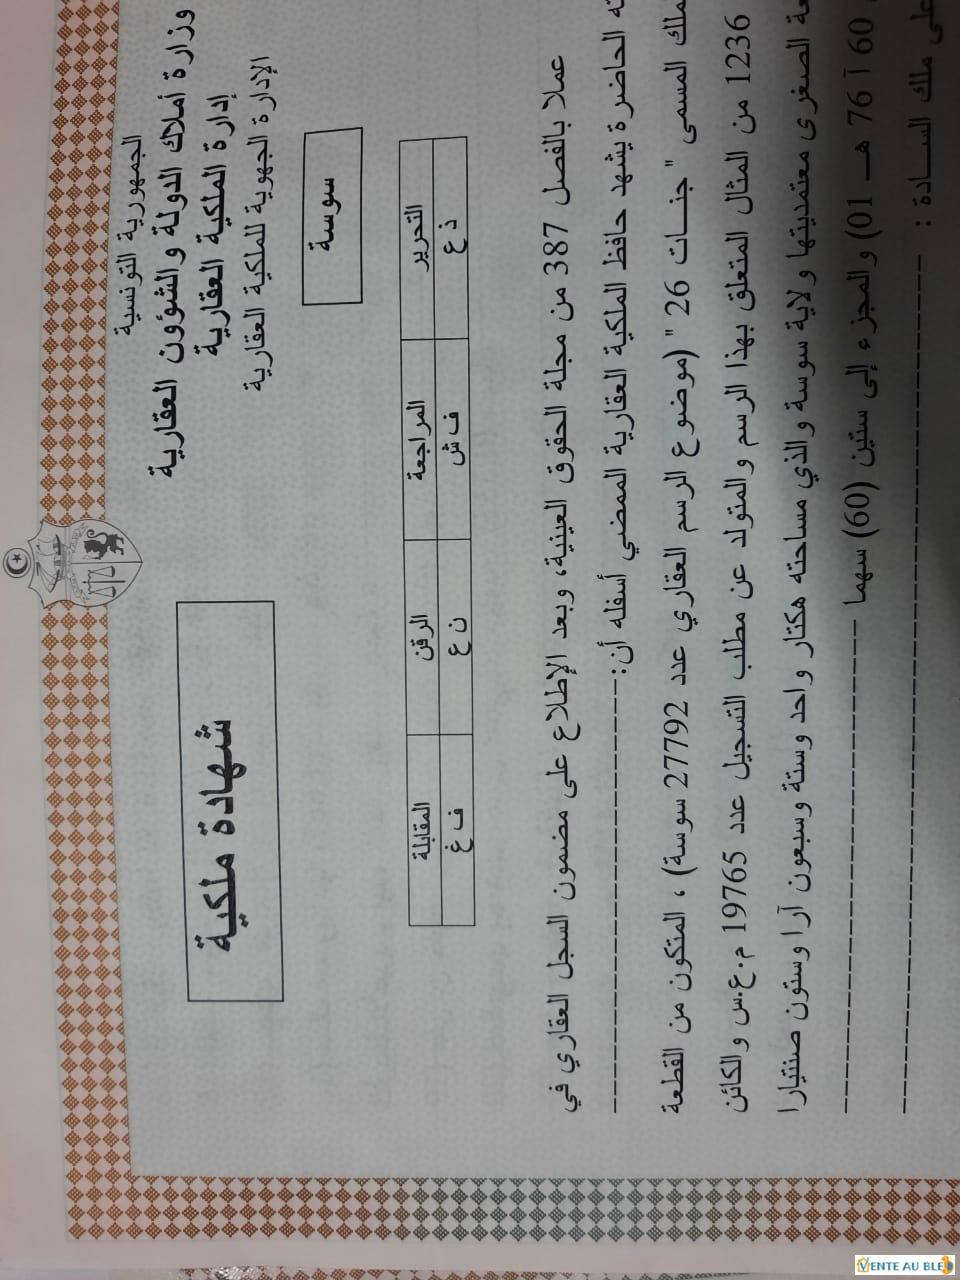 الجمهورية التونسية
وزارة أملاك الدولة والشؤون العقارية
إدارة الملكية العقارية
الإدارة الجهوية للملكية العقارية
سوسة
شهادة ملكية
التحرير المراجعة الرقن المقابلة
ذ ع ف ش ن ع ف غ
عملا بالفصل 387 من مجلة الحقوق العينية، وبعد الإطلاع على مضمون السجل العقاري في
الحاضرة يشهد حافظ الملكية العقارية الممضي أسفله أن:
المسمى "جنات 26" (موضوع الرسم العقاري عدد 27792 سوسة) ، المتكون من القطعة
1236 من المثال المتعلق بهذا الرسم والمتولد عن مطلب التسجيل عدد 19765 م.ع.س والكائن
الصغرى معتمديتها ولاية سوسة والذي مساحته هكتار واحد وستة وسبعون آرا وستون صنتيارا
60 آ 76 هـ 01) والمجزء إلى ستين (60) سهما
على ملك السادة :
VENTE AU BLED